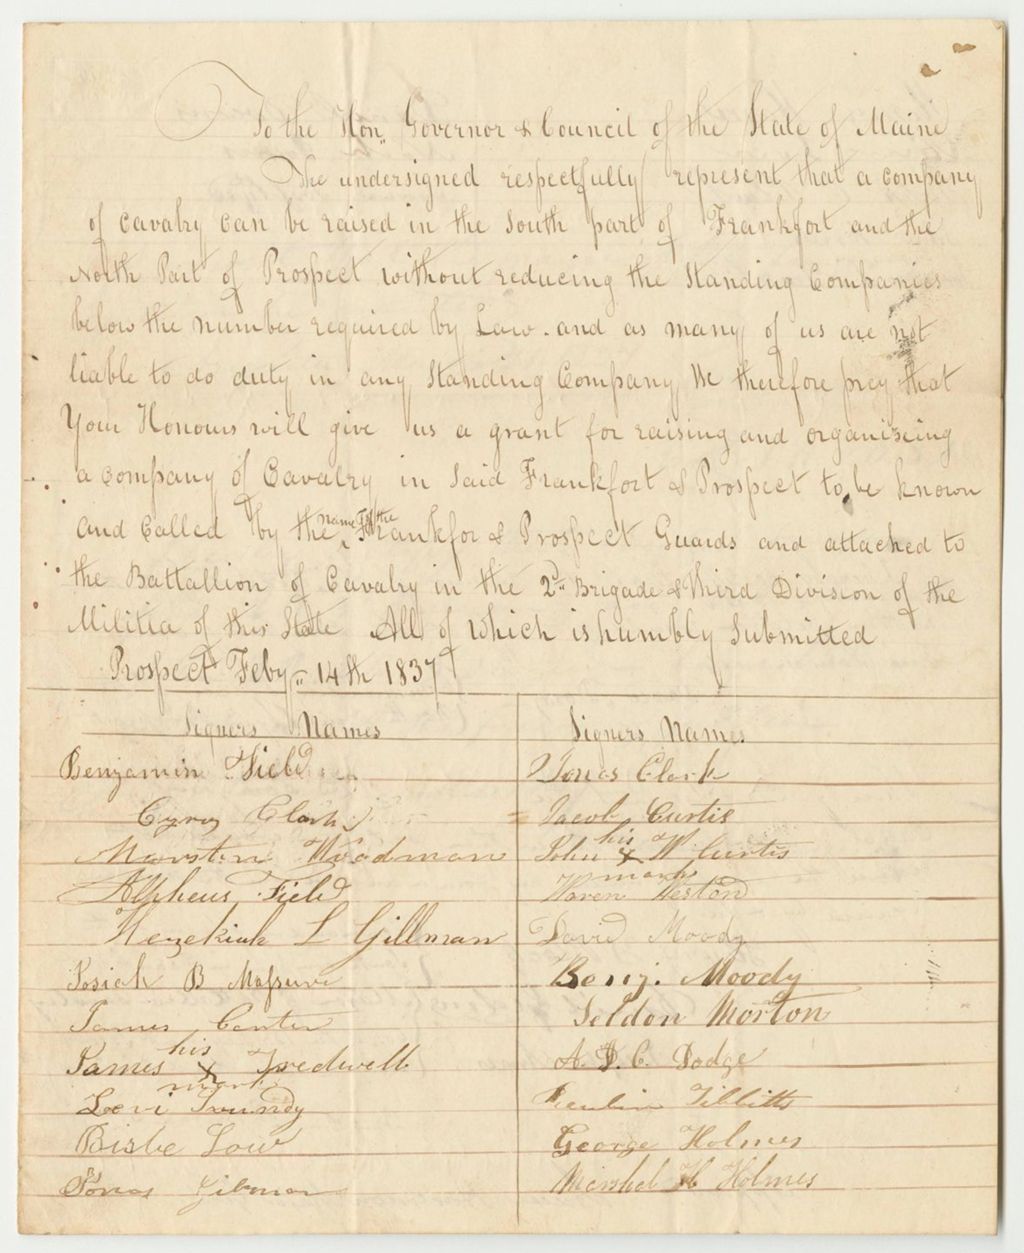 To the Hon. Governor & Council of the State of Maine
The undersigned respectfully represent that a company
of Cavalry can be raised in the South part of Frankfort and the
North Part of Prospect without reducing the Standing Companies
below the number required by Law. and as many of us are not
liable to do duty in any Standing Company We therefore pray that
Your Honours will give us a grant for raising and organizeing
a company of Cavalry in Said Frankfort & Prospect to be known
and Called by the name of the Frankfor & Prospect Guards and attached to
the Battallion of Cavalry in the 2d Brigade & third Division of the
Militia of this State All of which is humbly Submitted
Prospect Feby 14th 1837
Signers Names
Benjamin Field
Cyrus Clark
Marsten Woodman
Alpheus Field
Hezekiah L Gillman
Josiah B
James Carter
James his X mark Tredwell
Levi Trundy
Bisbe Low
Jonas Gilman
Signers Names
Jonas Clark
Jacob Curtis
John his X mark W Curtis
Haren Heston
David Moody
Benj. Moody
Seldon Morton
A. D. C. Dodge
Tibbitts
George Holmes
Marshel H Holmes